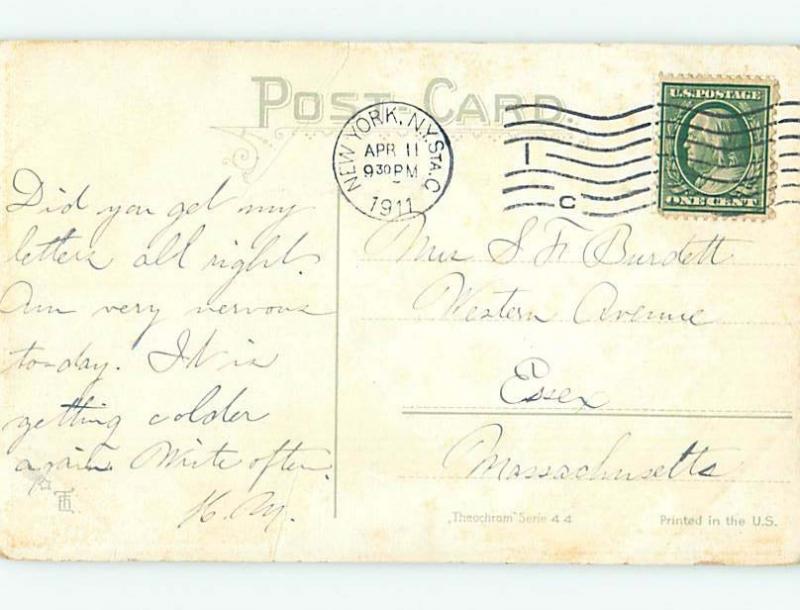 POST CARD.
NEW YORK, N.Y. STA. C
APR 11
9 30 PM
1911
1
C
U.S. POSTAGE
ONE CENT
Did you get my
letters all right.
Am very nervous
to-day. It is
getting colder
again. Write often.
K. M.
S F Burdett
Western Avenue
Essex
Massachusetts
„Theochrom" Serie 44
Printed in the U.S.